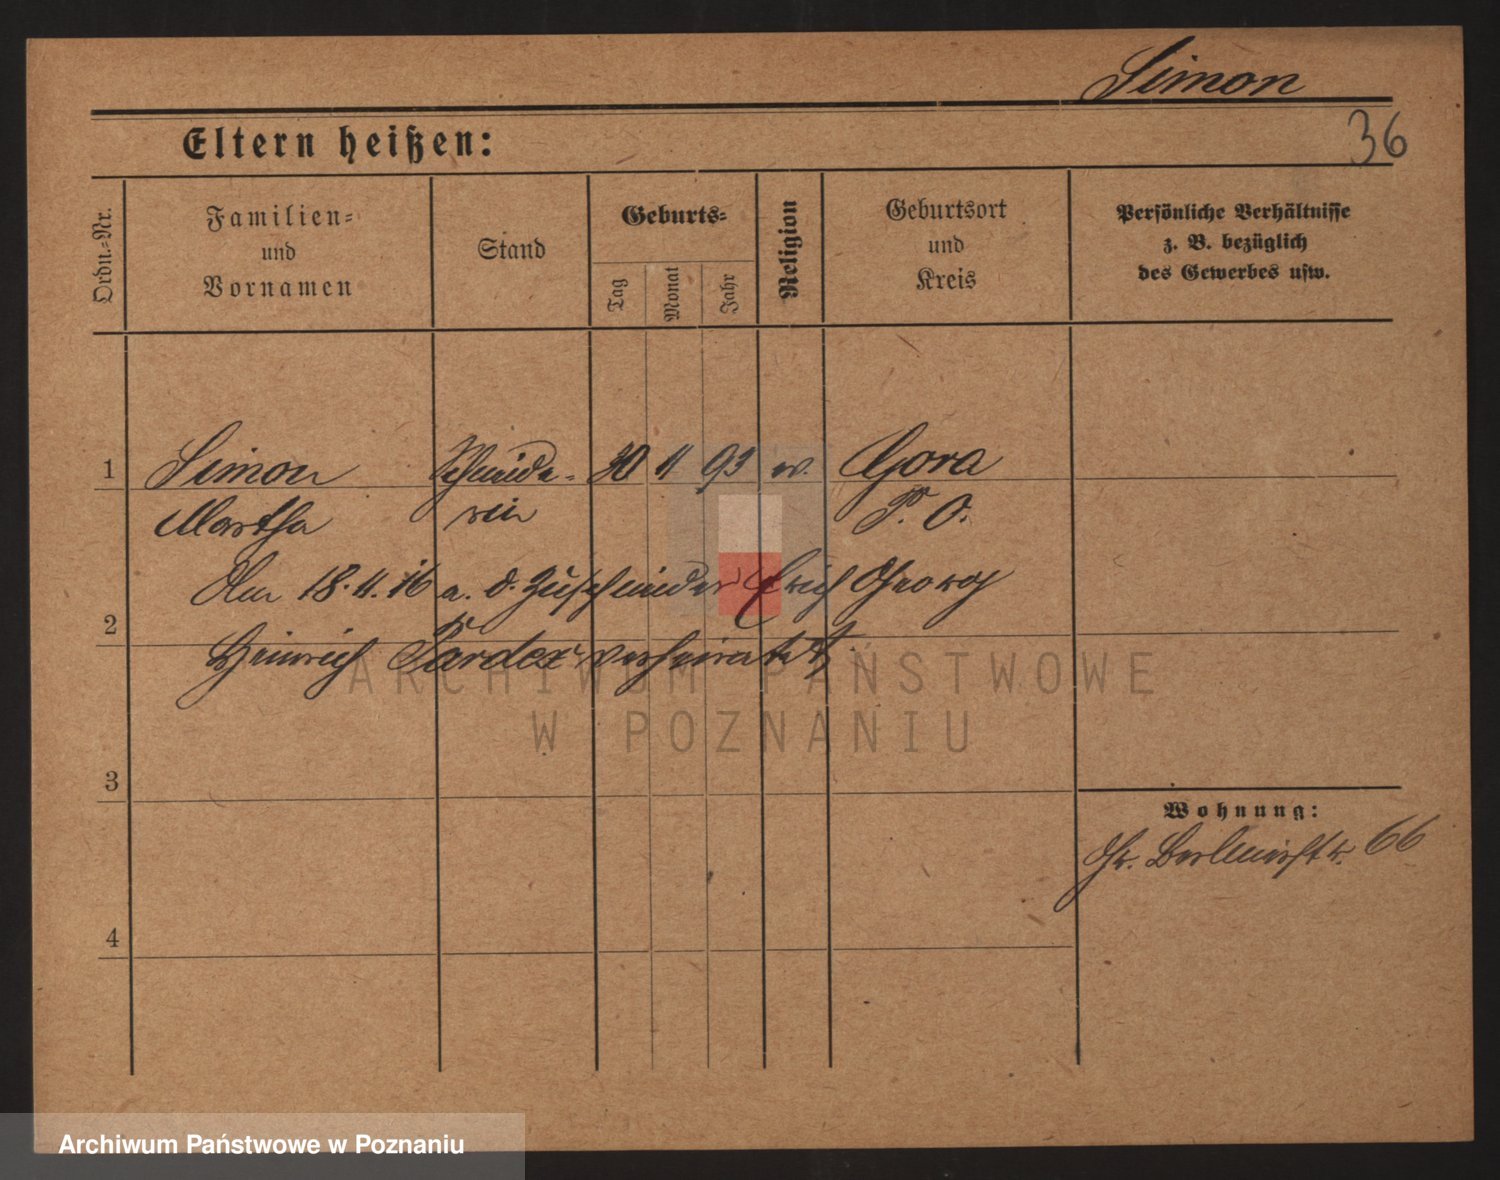 Simon
36
Eltern heißen:
Ordn.-Nr.
Familien- und Vornamen
Stand
Geburts-
Tag
Monat
Jahr
Religion
Geburtsort und Kreis
Persönliche Verhältnisse
z. B. bezüglich
des Gewerbes usw.
1 Simon Schneide- 30 11 93 ev. Gora
Martha rin P. O.
Am 18.11.16 a. d. Zuschneider Erich Georg
2
Heinrich Pardex verheiratet
ARCHIWUM PAŃSTWOWE
W POZNANIU
3
Wohnung:
Gr. Berlinerstr. 66
4
Archiwum Państwowe w Poznaniu